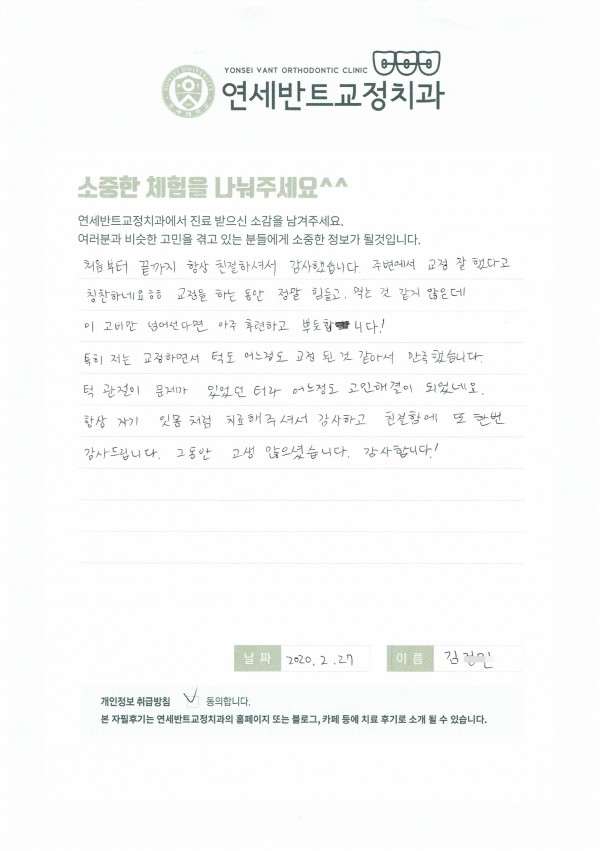 YONSEI VANT ORTHODONTIC CLINIC
연세반트교정치과
소중한 체험을 나눠주세요^^
연세반트교정치과에서 진료 받으신 소감을 남겨주세요.
여러분과 비슷한 고민을 겪고 있는 분들에게 소중한 정보가 될것입니다.
처음부터 끝까지 항상 친절하셔서 감사했습니다. 주변에서 교정 잘 했다고
칭찬하네요ㅎㅎ 교정을 하는동안 정말 힘들고, 먹는 것 같지 않은데
이 고비만 넘어선다면 아주 후련하고 뿌듯합니다!
특히 저는 교정하면서 턱도 어느정도 교정 된 것 같아서 만족했습니다.
턱 관절이 문제가 있었던 터라 어느정도 고민해결이 되었네요.
항상 자기 잇몸처럼 치료해주셔서 감사하고 친절함에 또 한번
감사드립니다. 그동안 고생 많으셨습니다. 감사합니다!
날 짜 2020. 2. 27 이 름 김
개인정보 취급방침 동의합니다.
본 자필후기는 연세반트교정치과의 홈페이지 또는 블로그, 카페 등에 치료 후기로 소개 될 수 있습니다.